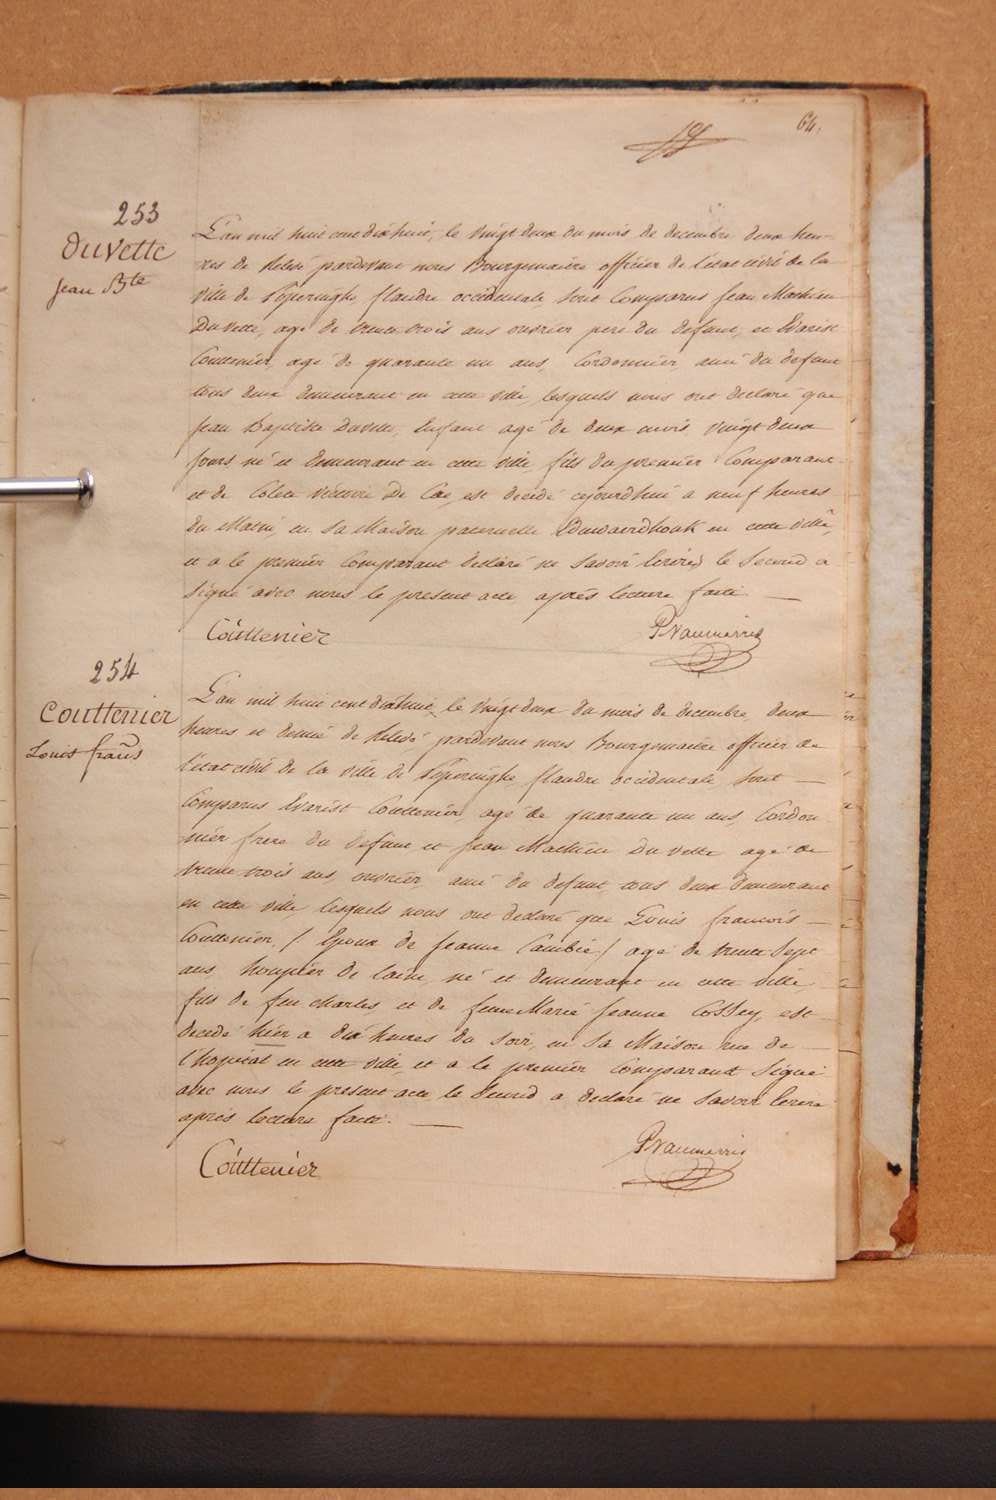 64.
253
Duvette
Jean Bte
L'an mil huit cent dixhuit, le vingt deux du mois de decembre deux heu-
res de relevé pardevant nous Bourgemaitre officier de l'etat civil de la
ville de Poperinghe, flandre occidentale, sont Comparus Jean Mathieu
Duvette, agé de trente trois ans ouvrier pere du defunt, et Evarist
Couttenier, agé de quarante un ans, Cordonnier ami du defunt
tous deux demeurant en cette ville, lesquels nous ont declaré que
Jean Baptiste Duvette, Enfant agé de deux mois vingt deux
jours né et demeurant en cette ville fils du premier Comparant
et de Colete Victoire De Cae, est decédé cejourdhui a neuf heures
du Matin, en Sa Maison paternelle en cette ville,
et a le premier Comparant declaré ne Savoir Ecrire, le Second a
Signé avec nous le present acte après lecture faite
Couttenier
PVanmerris
254
Couttenier
Louis frans
L'an mil huit cent dixhuit, le vingt deux du mois de decembre, deux
heures et demie de relevé pardevant nous Bourgemaitre officier de
l'etat civil de la ville de Poperinghe, flandre occidentale, sont
Comparus Evarist Couttenier, agé de quarante un ans, Cordon-
nier frere du defunt et Jean Mathieu Duvette agé de
trente trois ans, ouvrier, ami du defunt, tous deux demeurant
en cette ville lesquels nous ont declaré que Louis francois
Couttenier / Epoux de Jeanne Cambie / agé de trente Sept
ans, houpier de laine, né et demeurant en cette ville
fils de feu Charles et de feue Marie Jeanne Cossey, est
decedé hier a dix heures du Soir, en Sa Maison rue de
l'hopital en cette ville, et a le premier Comparant Signé
avec nous le present acte le Second a declaré ne Savoir Ecrire
après lecture faite.
Couttenier
PVanmerris